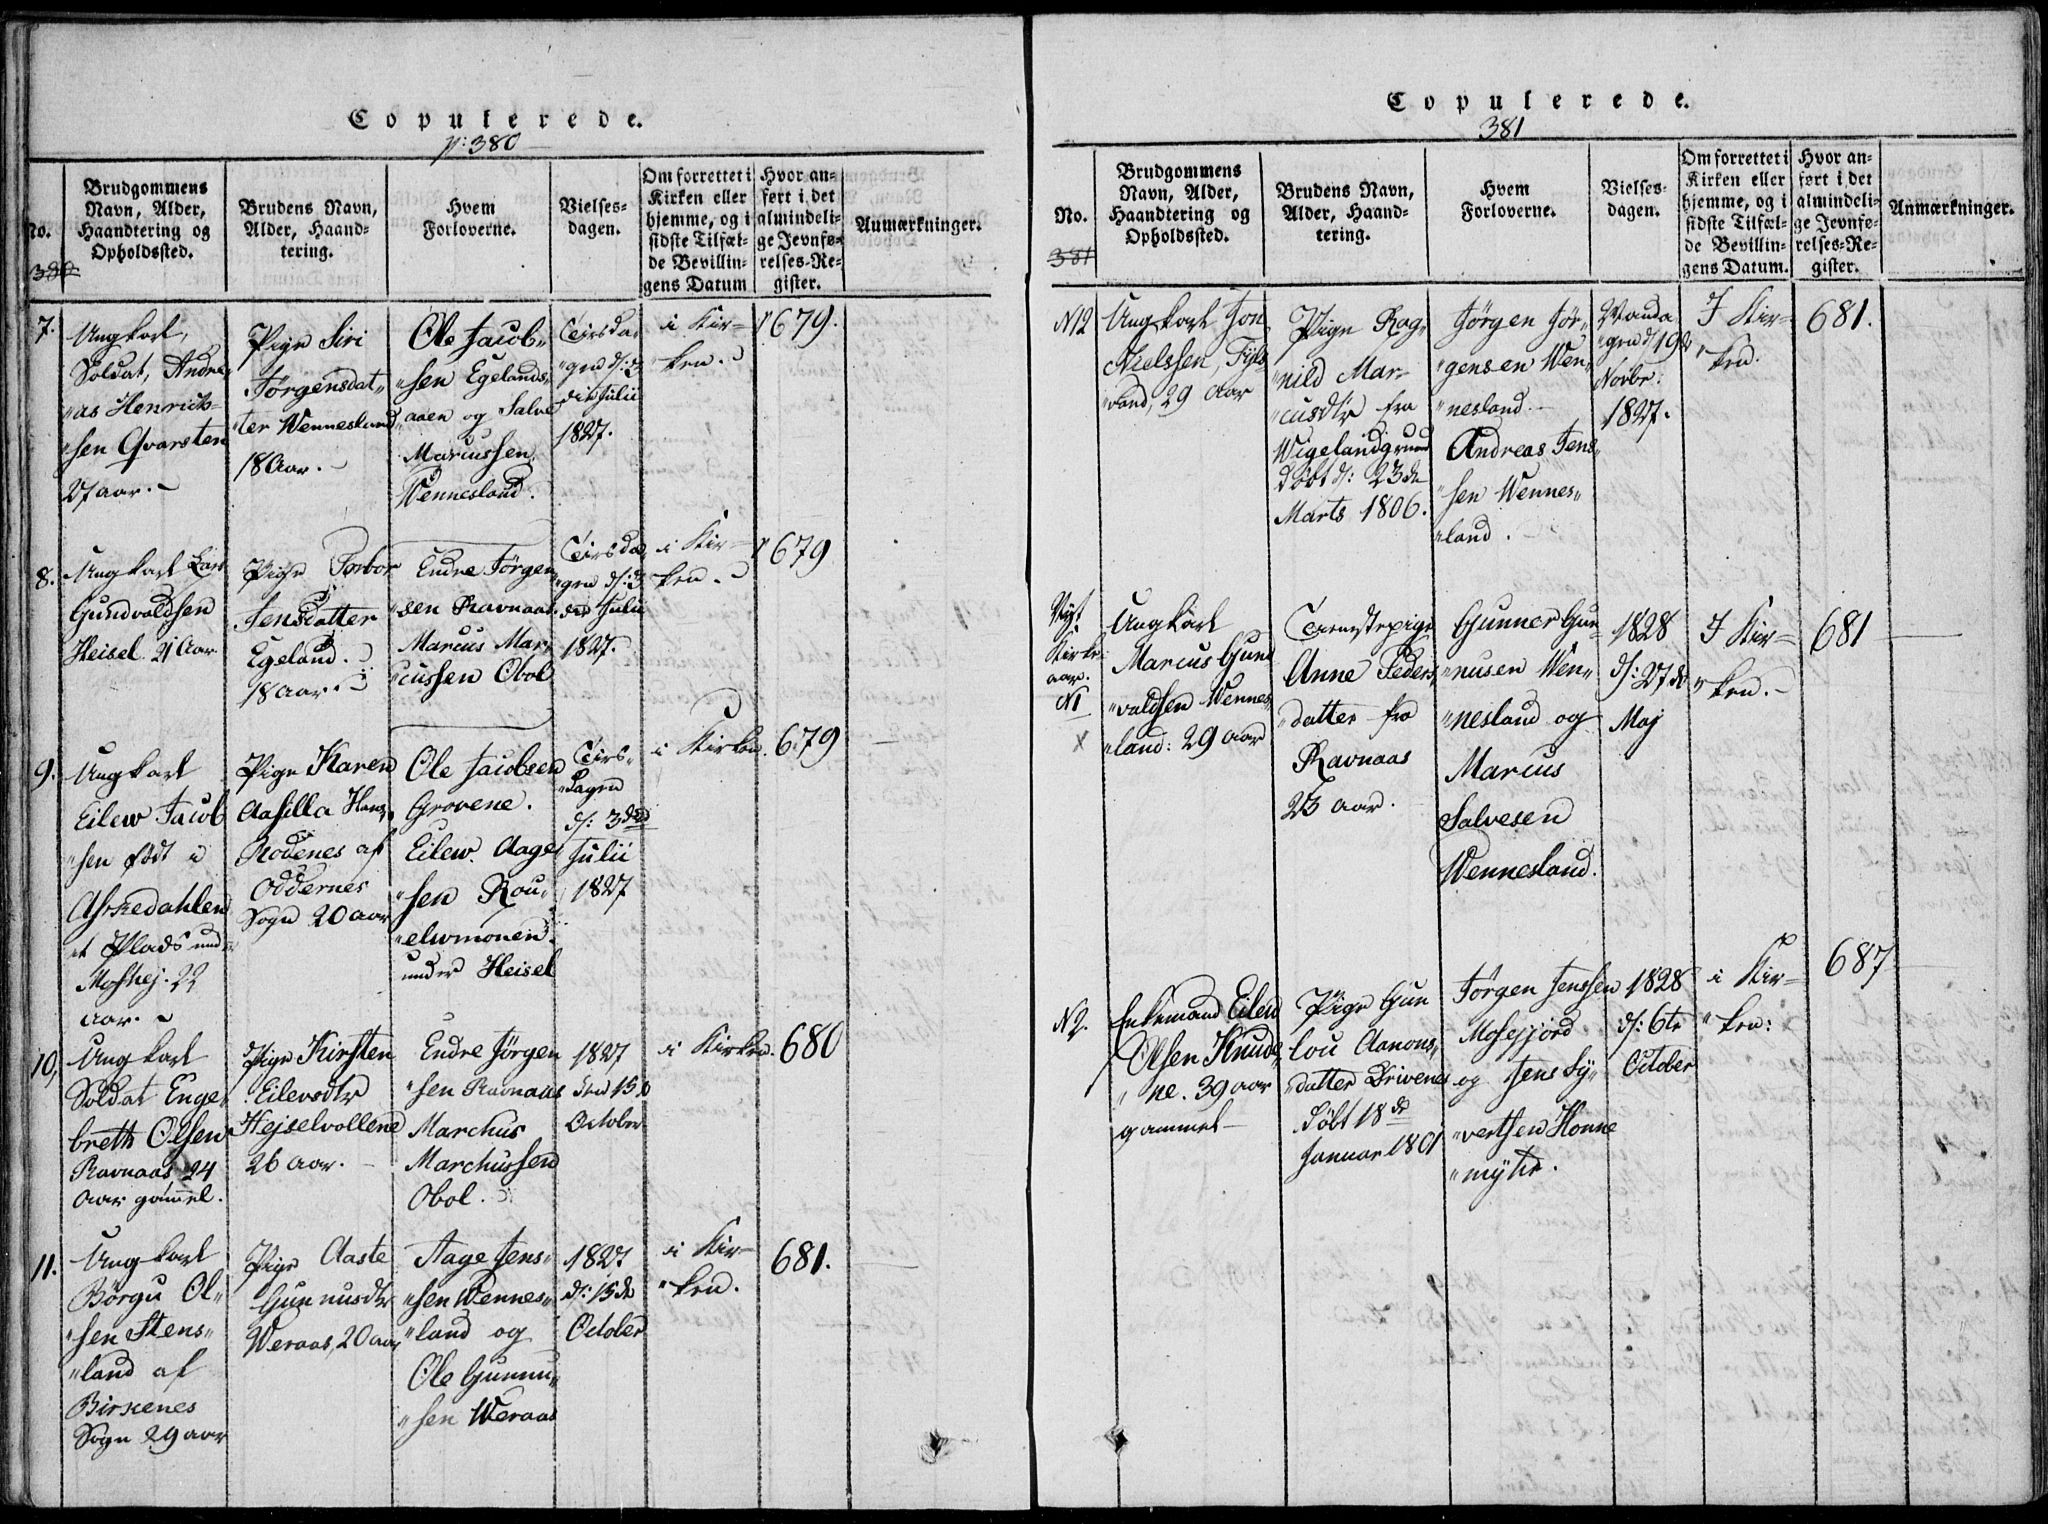 Copulerede.
p: 380
No.
380
Brudgommens
Navn, Alder,
Haandtering og
Opholdssted.
Brudens Navn,
Alder, Haand-
tering.
Hvem
Forloverne.
Vielses-
dagen.
Om forrettet i
Kirken eller
hjemme, og i
sidste Tilfæl-
de Bevillin-
gens Datum
Hvor an-
ført i det
almindeli-
ge Jevnfø-
relses-Re-
gister.
Anmærkninger.
7.
Ungkarl,
Soldat, Andre-
"as Henrich-
"sen Qvarsten
27 aar.
Pige Siri
Jørgensdat-
"ter Wennesland
18 Aar.
Ole Jacob-
"sen Egelands-
"aaen og Salve
Marcussen
Wennesland.
Tirsda-
"gen d: 3
die Julii
1827.
i Kir-
"ken.
679.
8.
Ungkarl Lars
Gundvaldsen
Heisel 21 Aar
Pige Torbor
Jensdatter
Egeland.
18 aar.
Endre Jørgen
"sen Ravnaas
Marcus Mar-
"cussen Obol
Tirsda-
"gen d: 3
die Julii
1827.
i Kir-
ken.
679
9.
Ungkarl
Eilew Jacob
"sen født i
Askedahlen
et Plads und-
Moshej. 22
aar.
Pige Karen
Aasilla Hans
Rodenes af
Oddernes
Sogn 20 aar
Ole Jacobsen
Grovene.
Eilew Aage
"sen Rou-
"elwmonen
under Heisel
Tirs-
"dagen
d: 3die
Julii
1827
i Kirken.
679
10,
Ungkarl
Soldat Enge-
breth Olsen
Ravnaas 24
Aar gammel.
Pige Kirsten
Eilevsdtr
Hejselvollene
26 aar.
Endre Jørgen
"sen Ravnaas
Marchus
Marchussen
Obol.
1827
den 15de
October
i Kirken.
680
11.
Ungkarl
Börgu Ol-
"sen Stens-
"land af
Birkenes
Sogn 29 aar
Pige Aaste
Gunnusdtr
Weraas, 20 aar
Aage Jens-
"sen Wennes-
"land og
Ole Gunnu-
"sen Weraas
1827
d: 15de
October
i Kir-
"ken.
681.
Copulerede.
381
No.
381
Brudgommens
Navn, Alder,
Haandtering og
Opholdssted.
Brudens Navn,
Alder, Haand-
tering.
Hvem
Forloverne.
Vielses-
dagen.
Om forrettet i
Kirken eller
hjemme, og i
sidste Tilfæl-
de Bevillin-
gens Datum.
Hvor an-
ført i det
almindeli-
ge Jevnfø-
relses-Re-
gister.
Anmærkninger.
N12
Ungkarl Jon
Nielssen,
29 Aar
Pige Rag-
"nild Mar-
"cusdtr fra
Wigelandgrund
døbt d: 23de
Marts 1806.
Jørgen Jør-
"gensen Wen-
"nesland.
Andreas Jens-
"sen Wennes-
"land.
Manda-
"gen d 19de
Novbr:
1827.
I Kir-
"ken.
681.
Nyt
Kirke-
aar.
N1
X
Ungkarl
Marcus Gund
"valdsen Wennes-
"land: 29 aar
Tienstepige
Anne Peders-
"datter fra
Ravnaas
23 aar.
Gunner Gun-
"nusen Wen-
"nesland og
Marcus
Salvesen
Wennesland.
1828
d: 27de
Maj
I Kir-
"ken.
681
N2.
Enkemand Eilew
Olsen Knude-
"ne. 39 aar
gammel
Pige Gun
lou Aanons-
"datter Drivenes
døbt 18de
Januar 1801
Jørgen Jenssen
Mosefjord
og Jens Sy-
"vertsen Honne
"myhr.
1828
d: 6te
October
i Kir-
"ken:
687